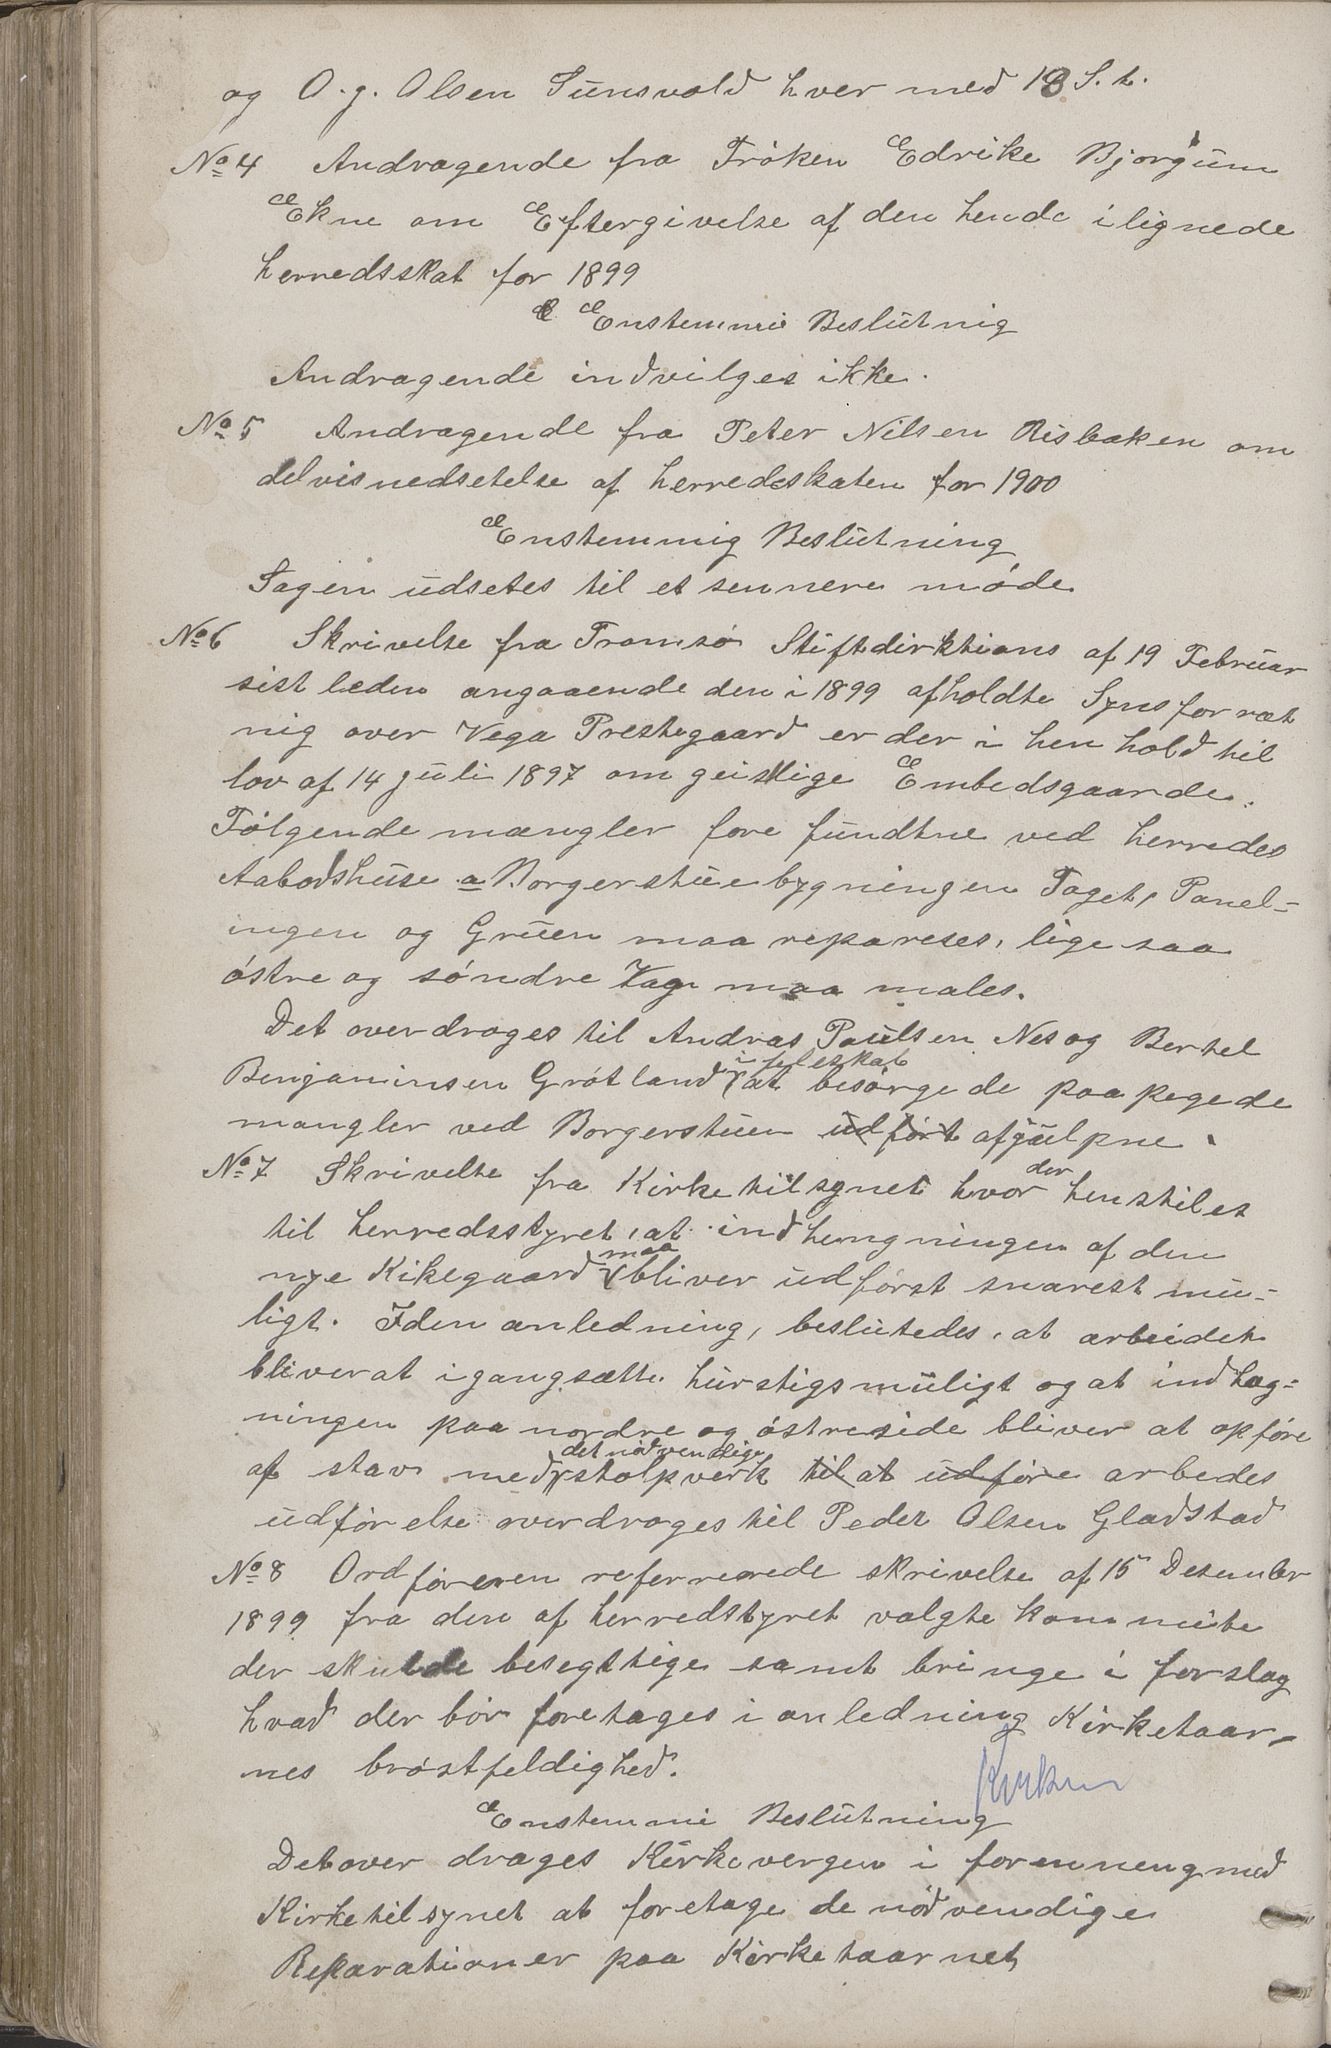 og O. g. Olsen Sunsvold hver med 18 S. t.
No 4 Andragende fra Fröken Edrike Bjorgum
Ekne om Eftergivelse af den hende ilignede
herredsskat for 1899
Enstemmie Beslutnig
Andragende indvilges ikke.
No 5 Andragende fra Peter Nilsen Risbaken om
delvisnedsetelse af herredsskaten for 1900
Enstemmig Beslutning
Sagen udsetes til et sennere möde
No 6 Skrivelse fra Tromsö Stiftdirktions af 19 Februar
sist leden angaaende den i 1899 afholdte Synsforret
nig over Vega Prestegaard er der i hen hold til
lov af 14 juli 1897 om geistlige Embedsgaarde.
Fölgende mangler fore fundtne ved herredes
Aabodshuse a Borgerstuebygningen Taget, Panel=
ingen og Gruen maa repareses, lige saa
östre og söndre Vag maa males.
Det overdrages til Andras Paulsen Nes og Bertel
Benjaminsen Grötland i feleskab at besörge de paapegede
mangler ved Borgerstuen udfört afjulpne.
No 7 Skrivelse fra Kirketilsynet hvor der henstiles
til herredsstyret, at indhengningen af den
nye Kikegaard maa bliver udförst snarest mu=
ligt. Iden anledning, beslutedes, at arbeidet
bliver at igangsætte hurstigsmuligt og at indhæg=
ningen paa nordre og östreside bliver at opföre
af stav med det nödvendige stolpverk til at udföre arbedes
udförelse overdrages til Peder Olsen Gladstad
No 8 Ordföreren refererede skrivelse af 15 Desember
1899 fra den af herredstyret valgte kommite
der skulde besegttige samt bringe i forslag
hvad der bör foretages i anledning Kirketaar=
nes bröstfeldighed.
Kirken
Enstemmie Beslutning
Det over drages Kirkevergen i forenneng med
Kirketilsynet at foretage de nödvendige
Reparationer paa Kirketaarnet